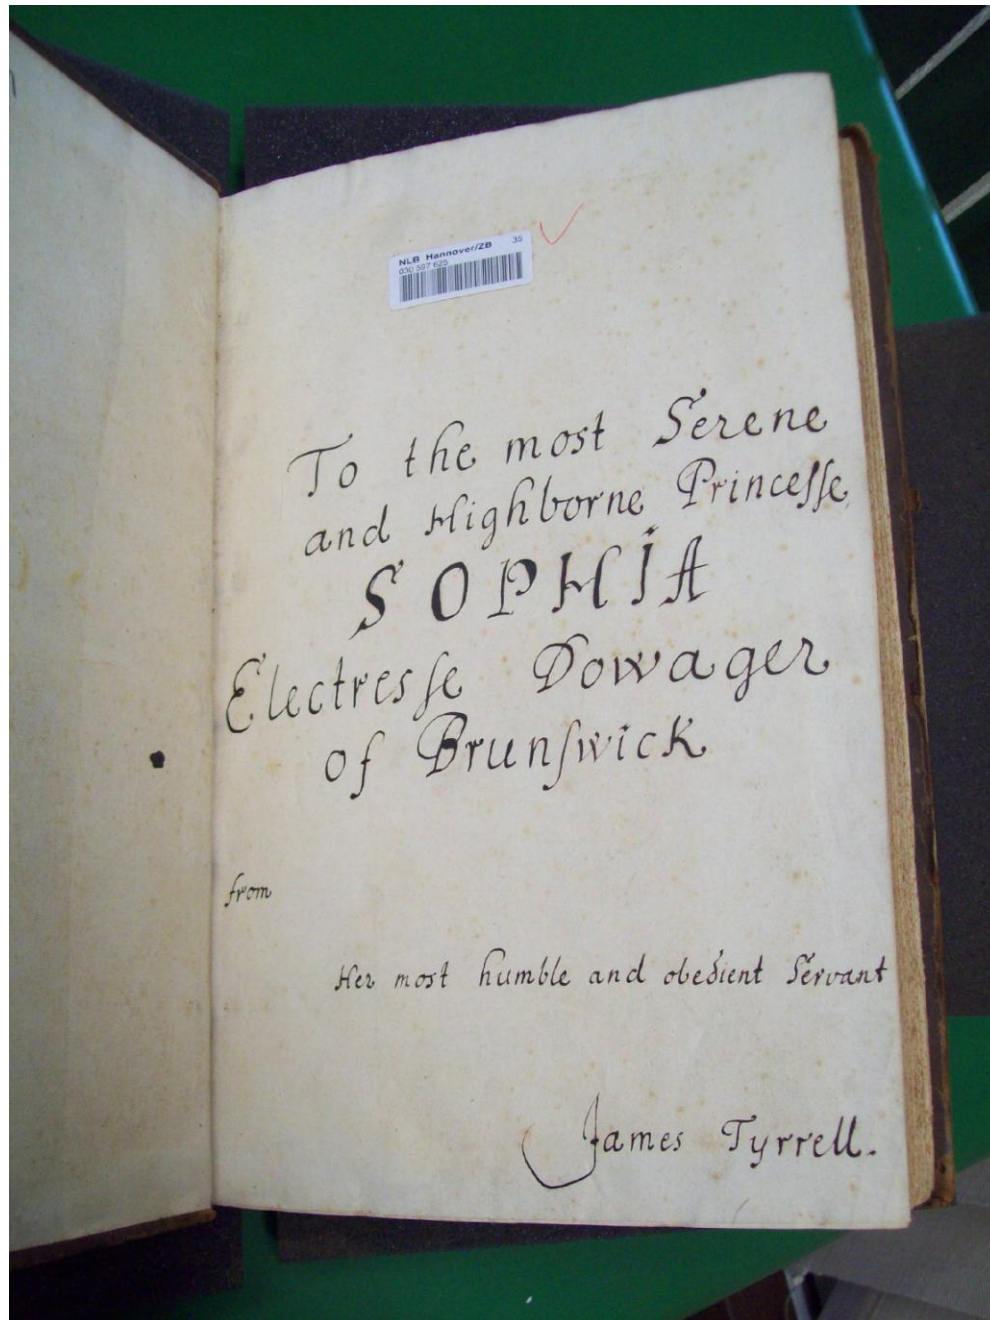 NLB Hannover/ZB 35
030 597 625
To the most Serene
and Highborne Princeſſe
SOPHIA
Electresſe Dowager
of Brunſwick
from
Her most humble and obedient Servant
James Tyrrell.